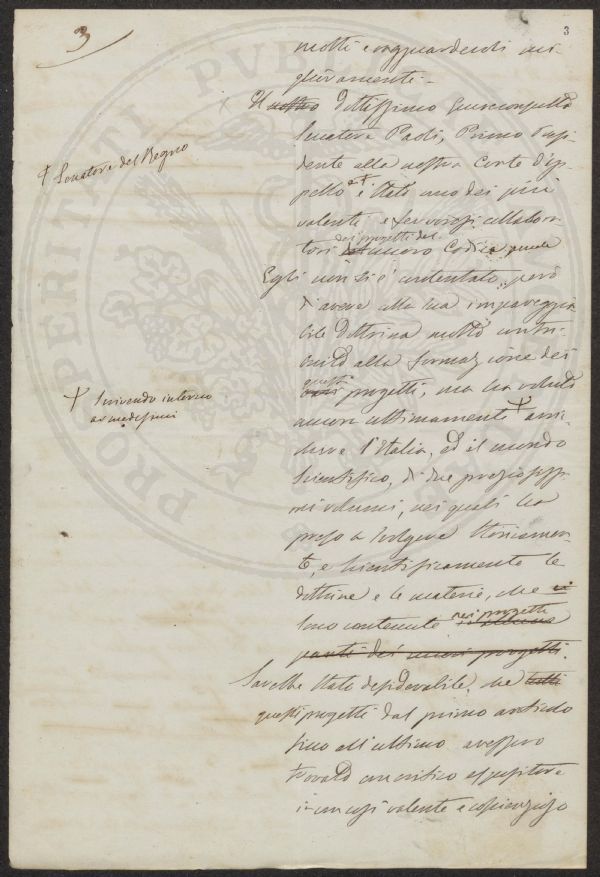 3
3
molti e ragguardevoli mi-
glioramenti.
Il nostro dottissimo Giureconsulto
Senatore Paoli, Primo Presi-
dente alla nostra Corte d'Ap-
pello + è stato uno dei più
valenti e fervorosi collabora-
tori dei progetti del nuovo Codice penale
Egli non si è contentato però
d'avere alla sua impareggia-
bile dottrina molto contri-
buito alla formazione dei
questi progetti, ma ha voluto
ancora ultimamente + arric-
chire l'Italia, ed il mondo
scientifico, di due preziosissi-
mi volumi, nei quali ha
preso a svolgere storicamen-
te, e scientificamente le
dottrine e le materie, che
sono contenute nei progetti
parti dei nuovi progetti.
Sarebbe stato desiderabile, che tutti
questi progetti dal primo articolo
sino all'ultimo avessero
trovato un critico espositore
in un così valente e coscienzioso
+ Senatore del Regno
+ scrivendo intorno
ai medesimi
PROSPERITATI PVBLICAE